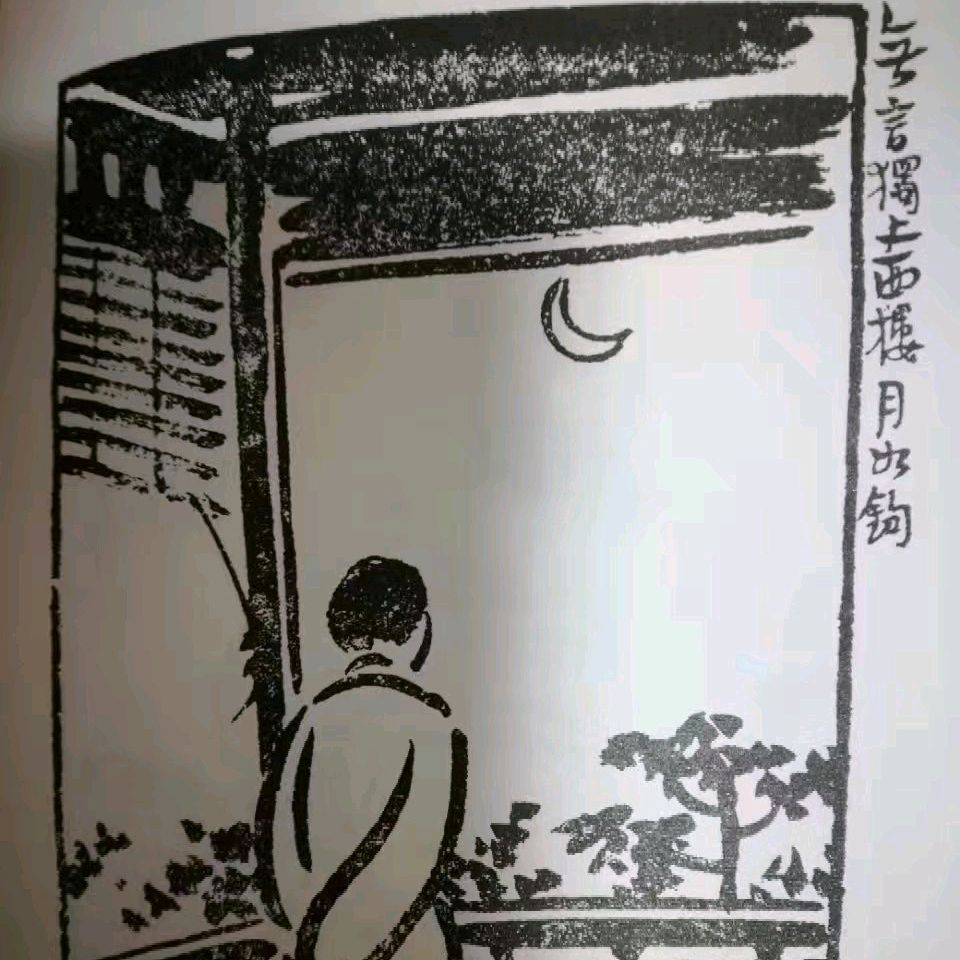 無言獨上西樓月如鈎